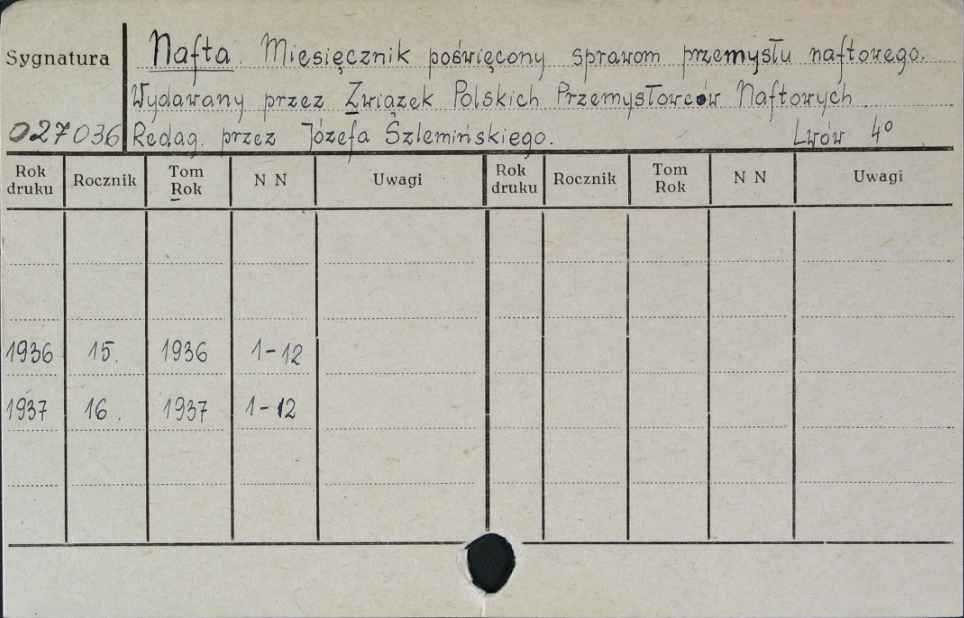 Sygnatura
Nafta. Miesięcznik poświęcony sprawom przemysłu naftowego.
Wydawany przez Związek Polskich Przemysłowców Naftowych.
027036 Redag. przez Józefa Szlemińskiego. Lwów 4°
Rok druku Rocznik Tom Rok N N Uwagi Rok druku Rocznik Tom Rok N N Uwagi
1936 15. 1936 1-12
1937 16. 1937 1-12